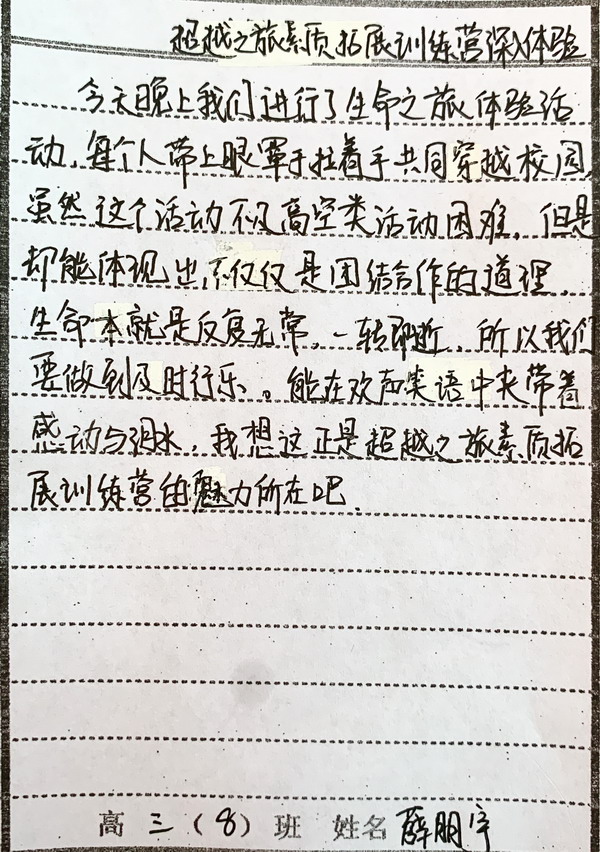 超越之旅素质拓展训练营深入体验
今天晚上我们进行了生命之旅体验活
动，每个人带上眼罩手拉着手共同穿越校园，
虽然这个活动不及高空类活动困难，但是
却能体现出不仅仅是团结合作的道理，
生命本就是反复无常，一转即逝，所以我们
要做到及时行乐。能在欢声笑语中夹带着
感动与泪水，我想这正是超越之旅素质拓
展训练营的魅力所在吧
高三（8）班 姓名 薛朋宇